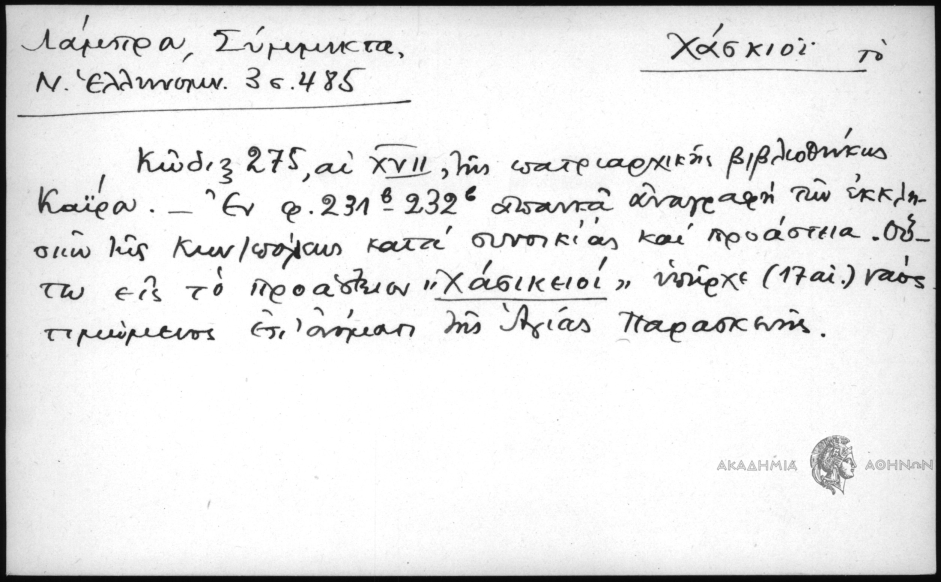 Λάμπρα, Σύμμικτα,
Ν. Ἑλληνομν. 3 σ. 485
Χάσκιοϊ τὸ
Κῶδιξ 275, αἰ XVII, τῆς πατριαρχικῆς βιβλιοθήκης
Καΐρα. — Ἐν φ. 231β - 232β ἀπαντᾶ ἀναγραφὴ τῶν ἐκκλη-
σιῶν τῆς Κων/πόλεως κατά συνοικίας καί προάστεια. Οὕ-
τω εἰς τὸ προάστειον "Χάσικειοί" ὑπῆρχε (17 αἰ.) ναὸς
τιμώμενος ἐπ' ὀνόματι τῆς Ἁγίας Παρασκευῆς.
ΑΚΑΔΗΜΙΑ ΑΘΗΝΩΝ